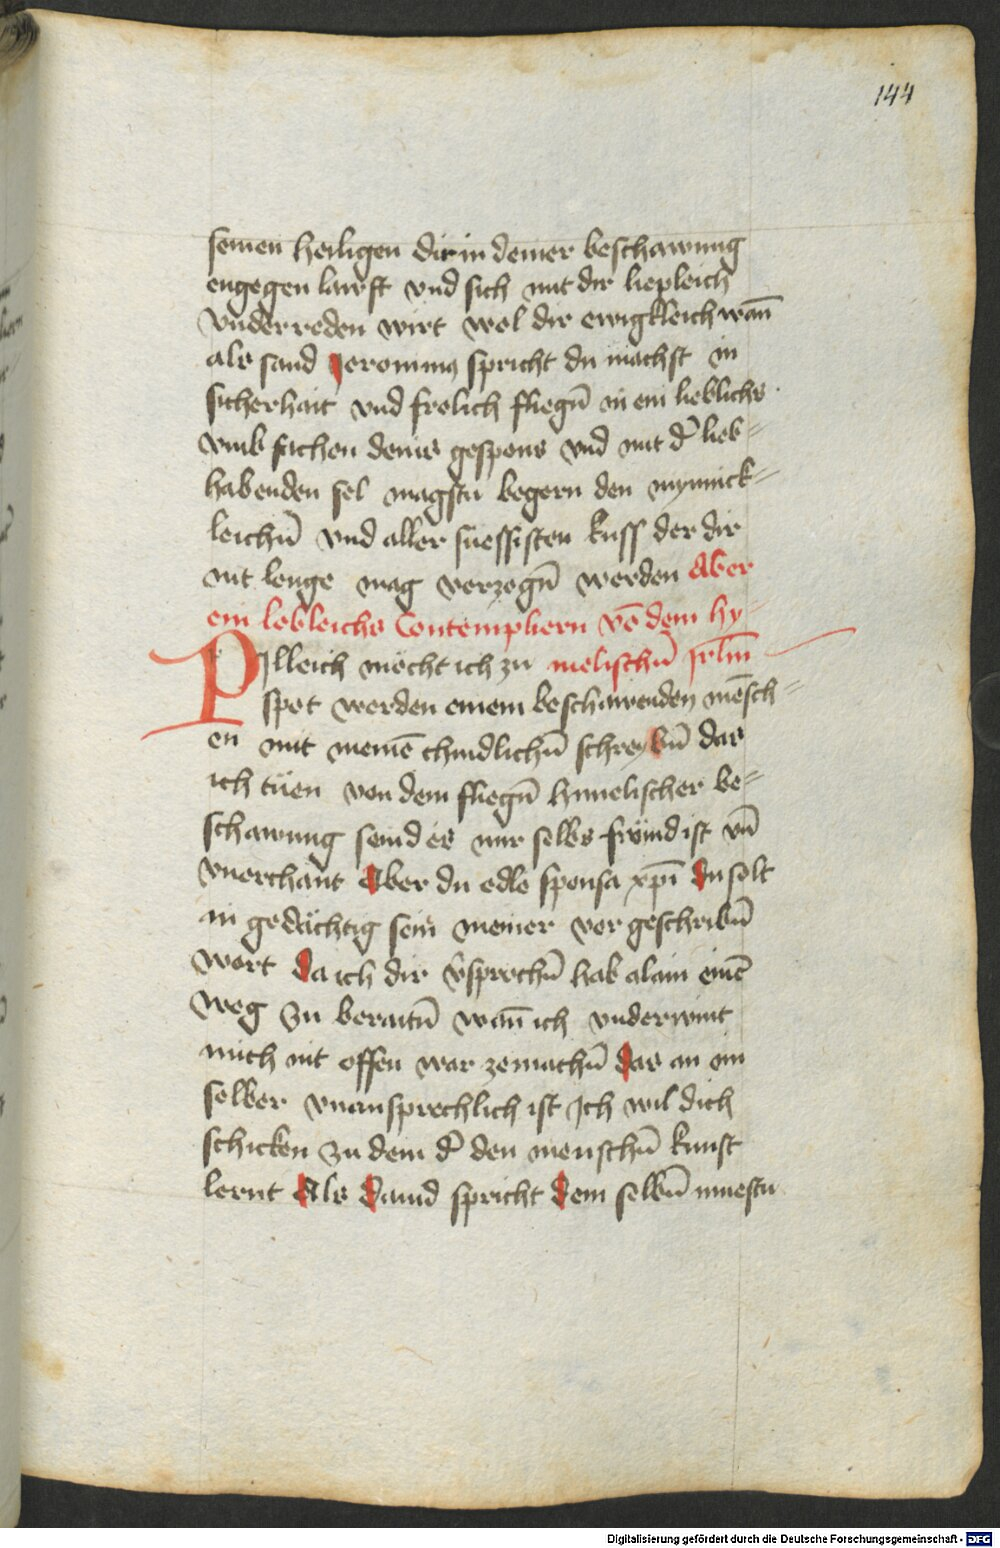 144
seinen heiligen dir in deiner beschawung
engegen lawft vnd sich mit dir liepleich
vnderreden wirt wol dir ewigkleich wan̄
als sand Jeronimꝯ spricht du machst in
sicherhait vnd frolich fliegn̄ in ein lieblichs
vmb fachen deins gespons vnd mit d̄ lieb⸗
habenden sel magstu begern den mynnick⸗
leichn̄ vnd aller suessisten kuss der dir
nit lenge mag verzogn̄ werden Aber
ein lobleichs Contempliern vō dem hy⸗
Pilleich mocht ich zu melischn̄ Jrlm̄
spot werden einem beschawenden mēsch⸗
en mit meinē chindlichn̄ schreybn̄ das
ich tüen von dem fliegn̄ himelischer be⸗
schawung seind es mir selbs frömd ist vn̄
vnerchant Aber du edle sponsa xp̄i du solt
in gedächtig sein meiner vor geschribn̄
wort da ich dir v̄sprochn̄ hab alain einē
weg zu beraitn̄ wan̄ ich vnderwint
mich nit offen war zemachn̄ das an im
selber vnausprechlich ist Ich wil dich
schicken zu dem d̄ den menschn̄ kunst
lernt Als Dauid spricht dem selbn̄ muestu
Digitalisierung gefördert durch die Deutsche Forschungsgemeinschaft - DFG